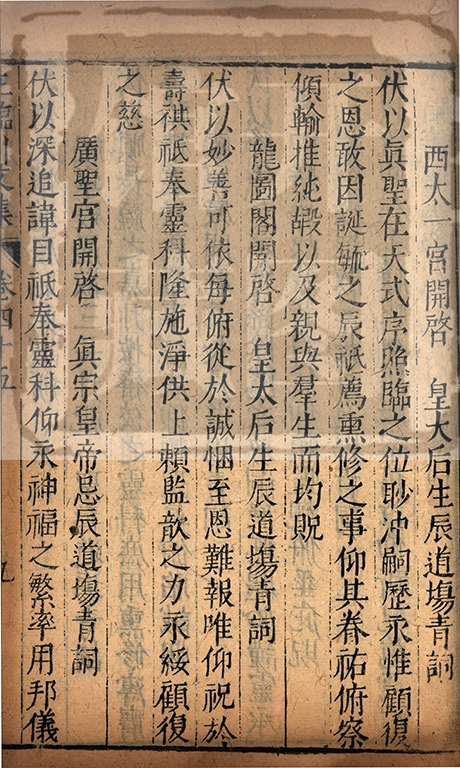 西太一宮開啓　皇太后生辰道塲青詞
伏以眞聖在天式序照臨之位眇沖嗣歷永惟顧復
之恩敢因誕毓之辰祇薦熏修之事仰其眷祐俯察
傾輸推純嘏以及親與羣生而均貺
龍圖閣開啓　皇太后生辰道塲青詞
伏以妙善可依每俯從於誠悃至恩難報唯仰祝於
壽祺祇奉靈科隆施淨供上賴監歆之力永綏顧復
之慈
廣聖宮開啓　眞宗皇帝忌辰道塲青詞
伏以深追諱目祇奉靈科仰永神福之繁率用邦儀
臨川文集　卷四十五　九